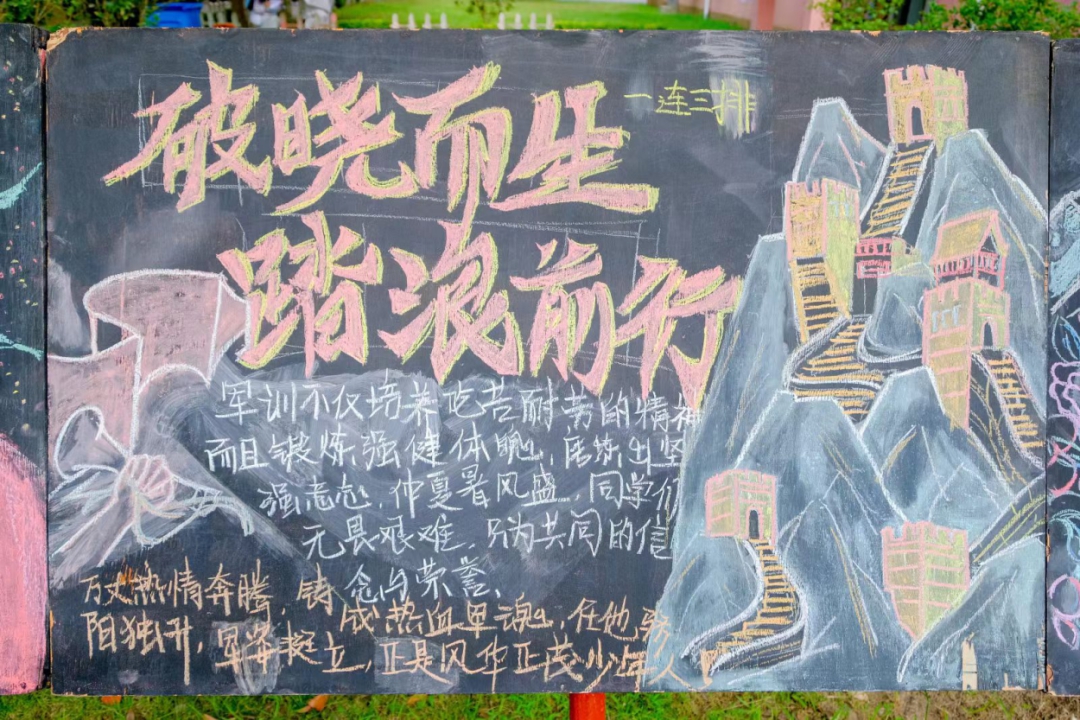 破晓而生
一连三排
踏浪前行
军训不仅培养吃苦耐劳的精神
而且锻炼强健体魄,磨炼出坚
强意志,仲夏暑风盛,同学们
无畏艰难,只为共同的信
念与荣誉、
万丈热情奔腾,铸成热血军魂,任他骄
阳独升,军姿挺立,正是风华正茂少年人